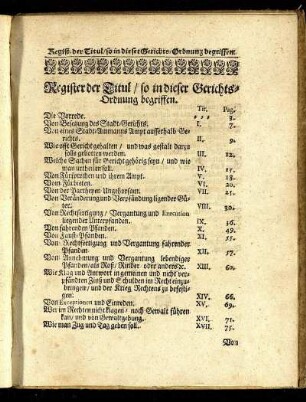 Regist. der Titul / so in dieser Gerichts-Ordnung begriffen.
Register der Titul / so in dieser Gerichts-
Ordnung begriffen.
Tit. Pag.
Die Vorrede. 1.
Von Besatzung des Stadt-Gerichts. I. 7.
Von eines Stadt-Ammanns Ampt ausserhalb Ge-
richts. II. 9.
Wie offt Gericht gehalten / und was gestalt darzu
solle gebotten werden. III. 12.
Welche Sachen für Gericht gehörig seyn / und wie
man urtheilen soll. IV. 15.
Von Fürsprechen und ihrem Ampt. V. 17.
Von Fürbieten. VI. 20.
Von der Partheyen Ungehorsam. VII. 21.
Von Veränderung und Verpfändung ligender Gü-
ter. VIII. 30.
Von Rechtfertigung / Vergantung und Execution
ligender Unterpfanden. IX. 36.
Von fahrenden Pfanden. X. 49.
Von Faust-Pfanden. XI. 55.
Von Rechtfertigung und Vergantung fahrender
Pfanden. 57.
Von Annehmung und Vergantung lebendiger
Pfanden / als Roß / Rinder oder anders &c. XIII. 60.
Wie Klag und Antwort in gemeinen und nicht ver-
pfändten Zinß und Schulden ins Recht einzu-
bringen / und der Krieg Rechtens zu befesti-
gen. XIV. 66.
Von Exceptionen und Einreden. XV. 69.
Wer im Rechten möge klagen / noch Gewalt führen
kan / und von Gewaltgebung. XVI. 71.
Wie man Zug und Tag geben soll. XVII. 75.
Von